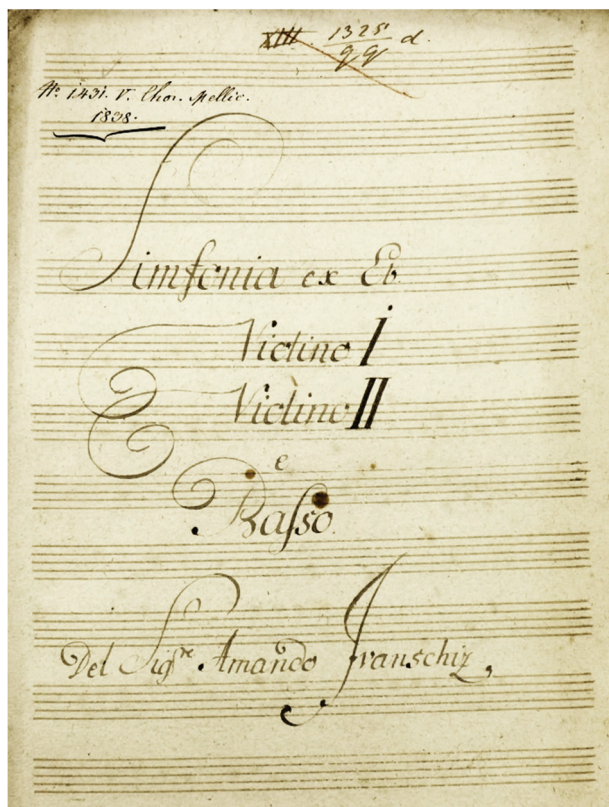 XIII. 1325
qq d.
No. 1431. V. Chor. Mellic.
1838.
Simfonia ex Eb
Violino I
Violino II
e
Basso.
Del Sigre Amando Ivanschiz,